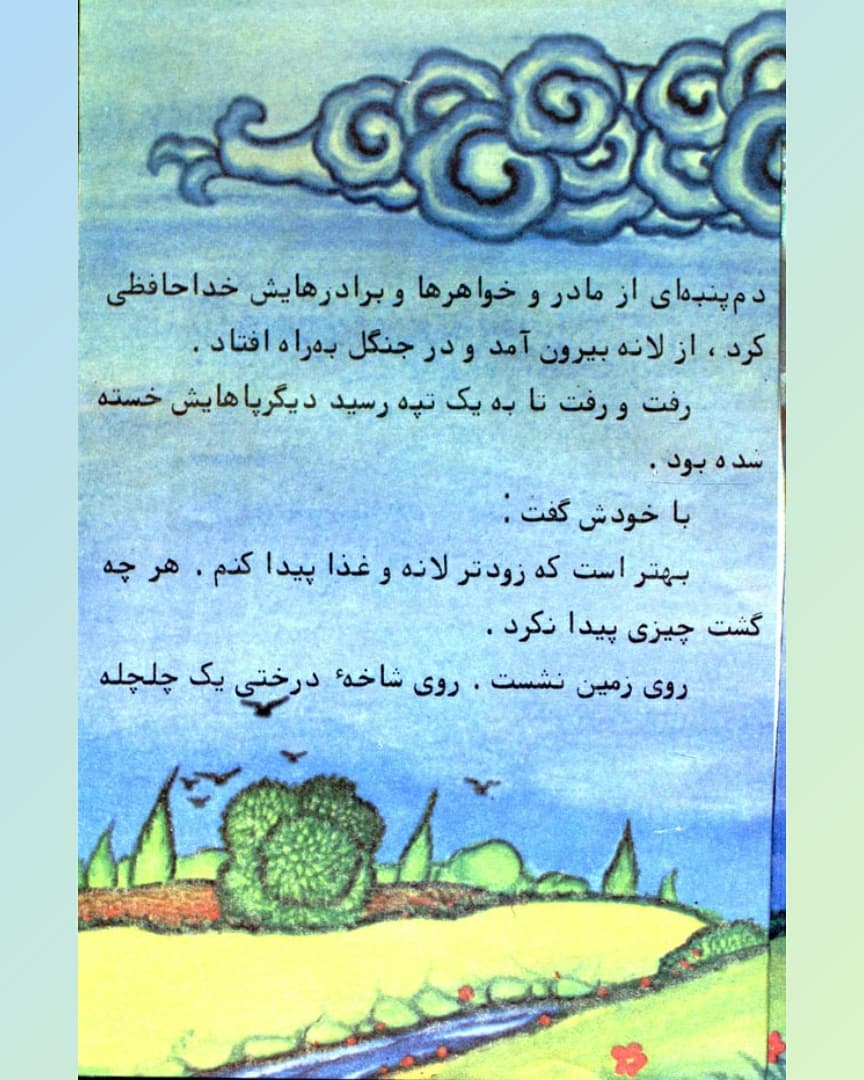 دم‌پنبه‌ای از مادر و خواهرها و برادرهایش خداحافظی
کرد ، از لانه بیرون آمد و در جنگل به‌راه افتاد .
رفت و رفت تا به یک تپه رسید دیگرپاهایش خسته
شده بود .
با خودش گفت :
بهتر است که زودتر لانه و غذا پیدا کنم . هر چه
گشت چیزی پیدا نکرد .
روی زمین نشست . روی شاخهٔ درختی یک چلچله